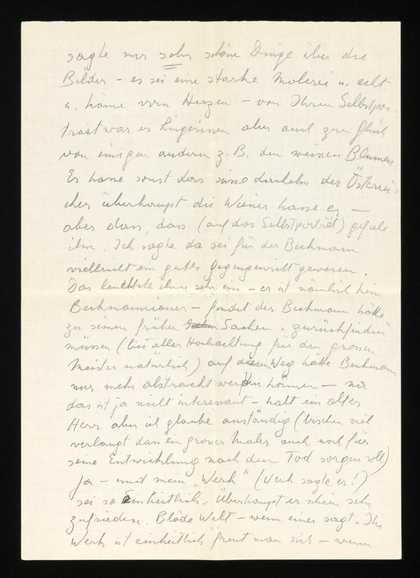 sagte nur sehr schöne Dinge über die
Bilder – es sei eine starke Malerei u. echt
u. käme vom Herzen – von Ihrem Selbstpor-
trait war er hingerissen aber auch zum Glück
von einigen anderen z.B. den weissen Blumen
Er hasse sonst das der Österrei-
cher überhaupt die Wiener hasse er –
aber das, das (auf das Selbstporträt) gefalle
ihm. Ich sagte da sei für der Beckmann
vielleicht ein gutes Gegengewicht gewesen.
Das leuchtete ihm sehr ein – er ist nämlich kein
Beckmannianer – findet der Beckmann hätte
zu seinen frühen Sachen zurückfinden
müssen (bei aller Hochachtung für den grossen
Meister natürlich) auf diesem Weg hätte Beckmann
nur mehr abstrackt werden können – na
das ist ja nicht interessant – halt ein alter
Herr aber ich glaube anständig (bisschen viel
verlangt dass ein grosser Maler auch noch für
seine Entwicklung nach dem Tod sorgen soll)
Ja – und mein „Werk“ (Werk sagte er!)
sei so einheitlich. Überhaupt er schien sehr
zufrieden. Blöde Welt – wenn einer sagt, Ihr
Werk ist einheitlich freut man sich – wenn